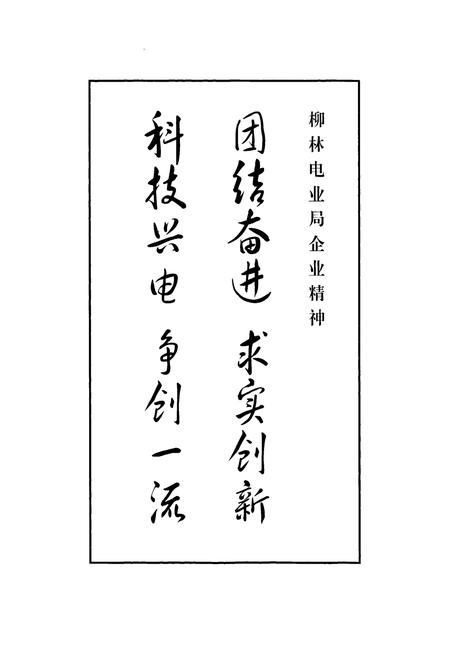 柳林电业局企业精神
团结奋进 求实创新
科技兴电 争创一流